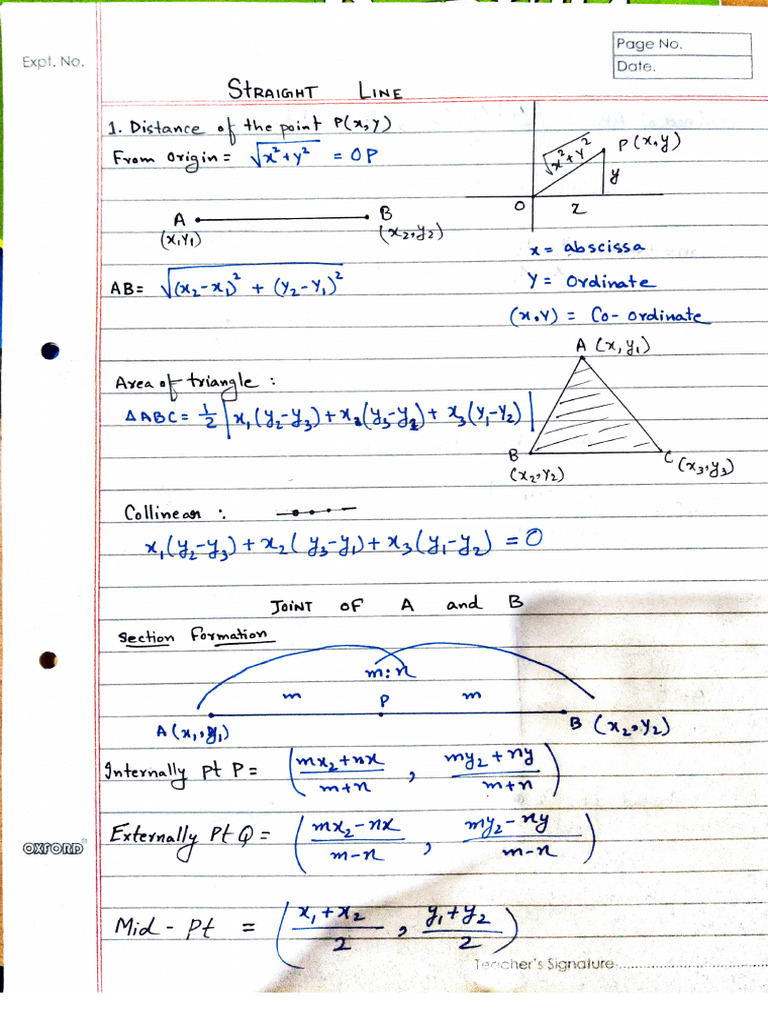 Expt. No.
Page No.
Date.
STRAIGHT LINE
1. Distance of the point P(x,y)
From Origin = √x²+y² = OP
√x²+y²
P(x,y)
y
O
x
A
B
(x,y₁)
(x₂,y₂)
x = abscissa
AB = √(x₂-x₁)² + (y₂-y₁)²
Y = Ordinate
(x,y) = Co-ordinate
A (x,y₁)
Area of triangle :
ΔABC = 1/2 |x₁(y₂-y₃)+x₂(y₃-y₁)+ x₃(y₁-y₂)|
B
(x₂,y₂)
C (x₃,y₃)
Collinear :
x₁(y₂-y₃)+x₂(y₃-y₁)+x₃(y₁-y₂) = 0
JOINT OF A and B
Section Formation
m:n
m
P
m
A(x₁,y₁)
B (x₂,y₂)
Internally pt P = (mx₂+nx/m+n , my₂+ny/m+n)
Externally Pt Q = (mx₂-nx/m-n , my₂-ny/m-n)
OXFORD®
Mid-Pt = (x₁+x₂/2 , y₁+y₂/2)
Teacher's Signature